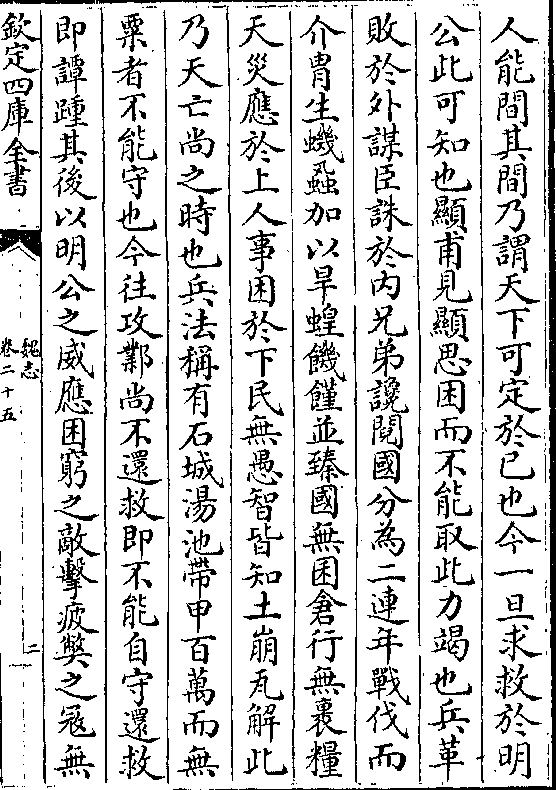 人能間其間乃謂天下可定於已也今一旦求救於明
公此可知也顯甫見顯思困而不能取此力竭也兵革
敗於外謀臣誅於内兄弟讒䦧國分為二連年戰伐而
介胄生蟣蝨加以旱蝗饑饉並臻國無囷倉行無裹糧
天災應於上人事困於下民無愚智皆知土崩瓦解此
乃天亡尚之時也兵法稱有石城湯池帶甲百萬而無
粟者不能守也今往攻鄴尚不還救即不能自守還救
即譚踵其後以明公之威應困窮之敵擊疲弊之冦無
欽定四庫全書
魏志
卷二十五
二